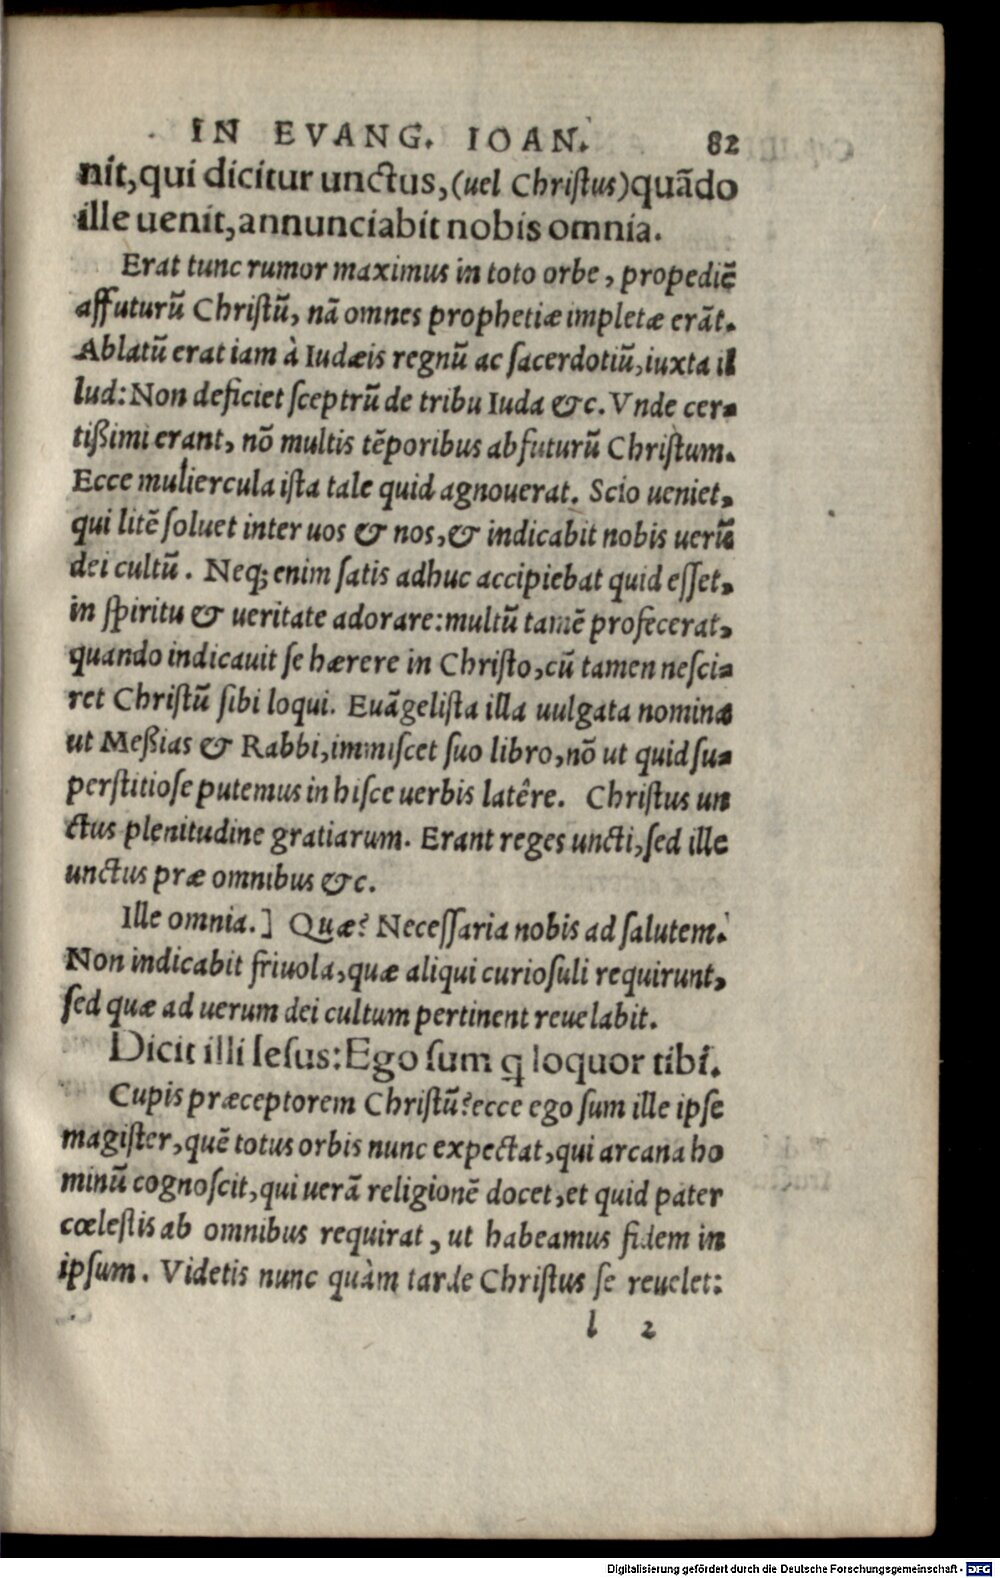 IN EVANG. IOAN. 82
nit, qui dicitur unctus, (uel Christus) quãdo
ille uenit, annunciabit nobis omnia.
Erat tunc rumor maximus in toto orbe, propediẽ
affuturũ Christũ, nã omnes prophetiæ impletæ erãt.
Ablatũ erat iam à Iudæis regnũ ac sacerdotiũ, iuxta il
lud: Non deficiet sceptrũ de tribu Iuda &c. Vnde cer-
tißimi erant, nõ multis tẽporibus abfuturũ Christum.
Ecce muliercula ista tale quid agnouerat. Scio ueniet,
qui litẽ soluet inter uos & nos, & indicabit nobis uerũ
dei cultũ. Neq; enim satis adhuc accipiebat quid esset,
in spiritu & ueritate adorare: multũ tamẽ profecerat,
quando indicauit se hærere in Christo, cũ tamen nesci-
ret Christũ sibi loqui. Euãgelista illa uulgata nomina
ut Meßias & Rabbi, immiscet suo libro, nõ ut quid su-
perstitiose putemus in hisce uerbis latêre. Christus un
ctus plenitudine gratiarum. Erant reges uncti, sed ille
unctus præ omnibus &c.
Ille omnia.] Quæ? Necessaria nobis ad salutem.
Non indicabit friuola, quæ aliqui curiosuli requirunt,
sed quæ ad uerum dei cultum pertinent reuelabit.
Dicit illi Iesus: Ego sum ꝗ loquor tibi.
Cupis præceptorem Christũ? ecce ego sum ille ipse
magister, quẽ totus orbis nunc expectat, qui arcana ho
minũ cognoscit, qui uerã religionẽ docet, et quid pater
cœlestis ab omnibus requirat, ut habeamus fidem in
ipsum. Videtis nunc quàm tarde Christus se reuelet:
l 2
Digitalisierung gefördert durch die Deutsche Forschungsgemeinschaft - DFG